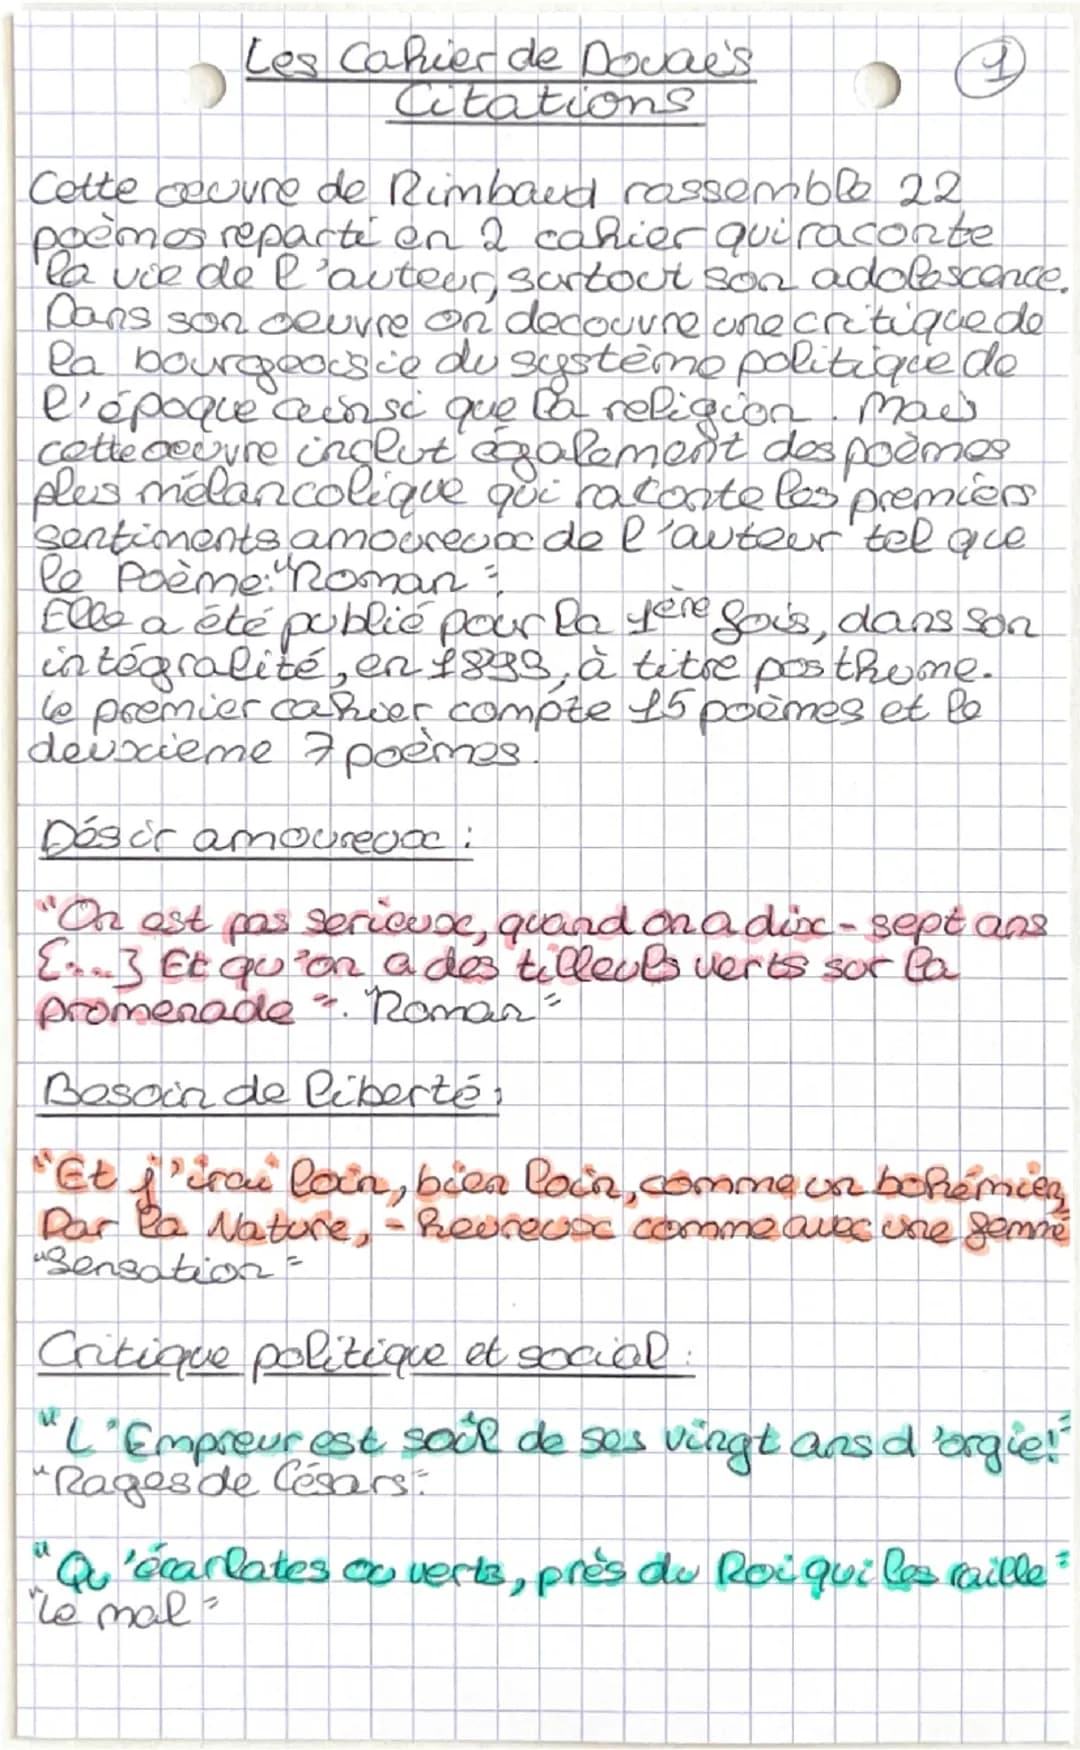 Les Cahier de Douais
1
Citations
Cette œuvre de Rimbaud rassemble 22
poèmes reparti en 2 cahier qui raconte
la vie de l'auteur, surtout son adolescence.
Dans son oeuvre on decouvre une critique de
la bourgeoisie du système politique de
l'époque ainsi que la religion. Mais
cette oeuvre inclut également des poèmes
plus mélancolique qui raconte les premiers
sentiments amoureux de l'auteur tel que
le Poème: "Roman".
Elle a été publié pour la 1ère fois, dans son
intégralité, en 1893, à titre posthume.
Le premier cahier compte 15 poèmes et le
deuxieme 7 poèmes.
Désir amoureux :
"On est pas serieux, quand on a dix-sept ans
[...] Et qu'on a des tilleuls verts sur la
promenade". "Roman"
Besoin de liberté :
"Et j'irai loin, bien loin, comme un bohémien,
Par la Nature, - heureux comme avec une femme
"Sensation"
Critique politique et social :
"L'Empreur est soûl de ses vingt ans d'orgie!"
"Rages de Césars"
"Qu'écarlates ou verts, près du Roi qui les raille"
"Le mal"